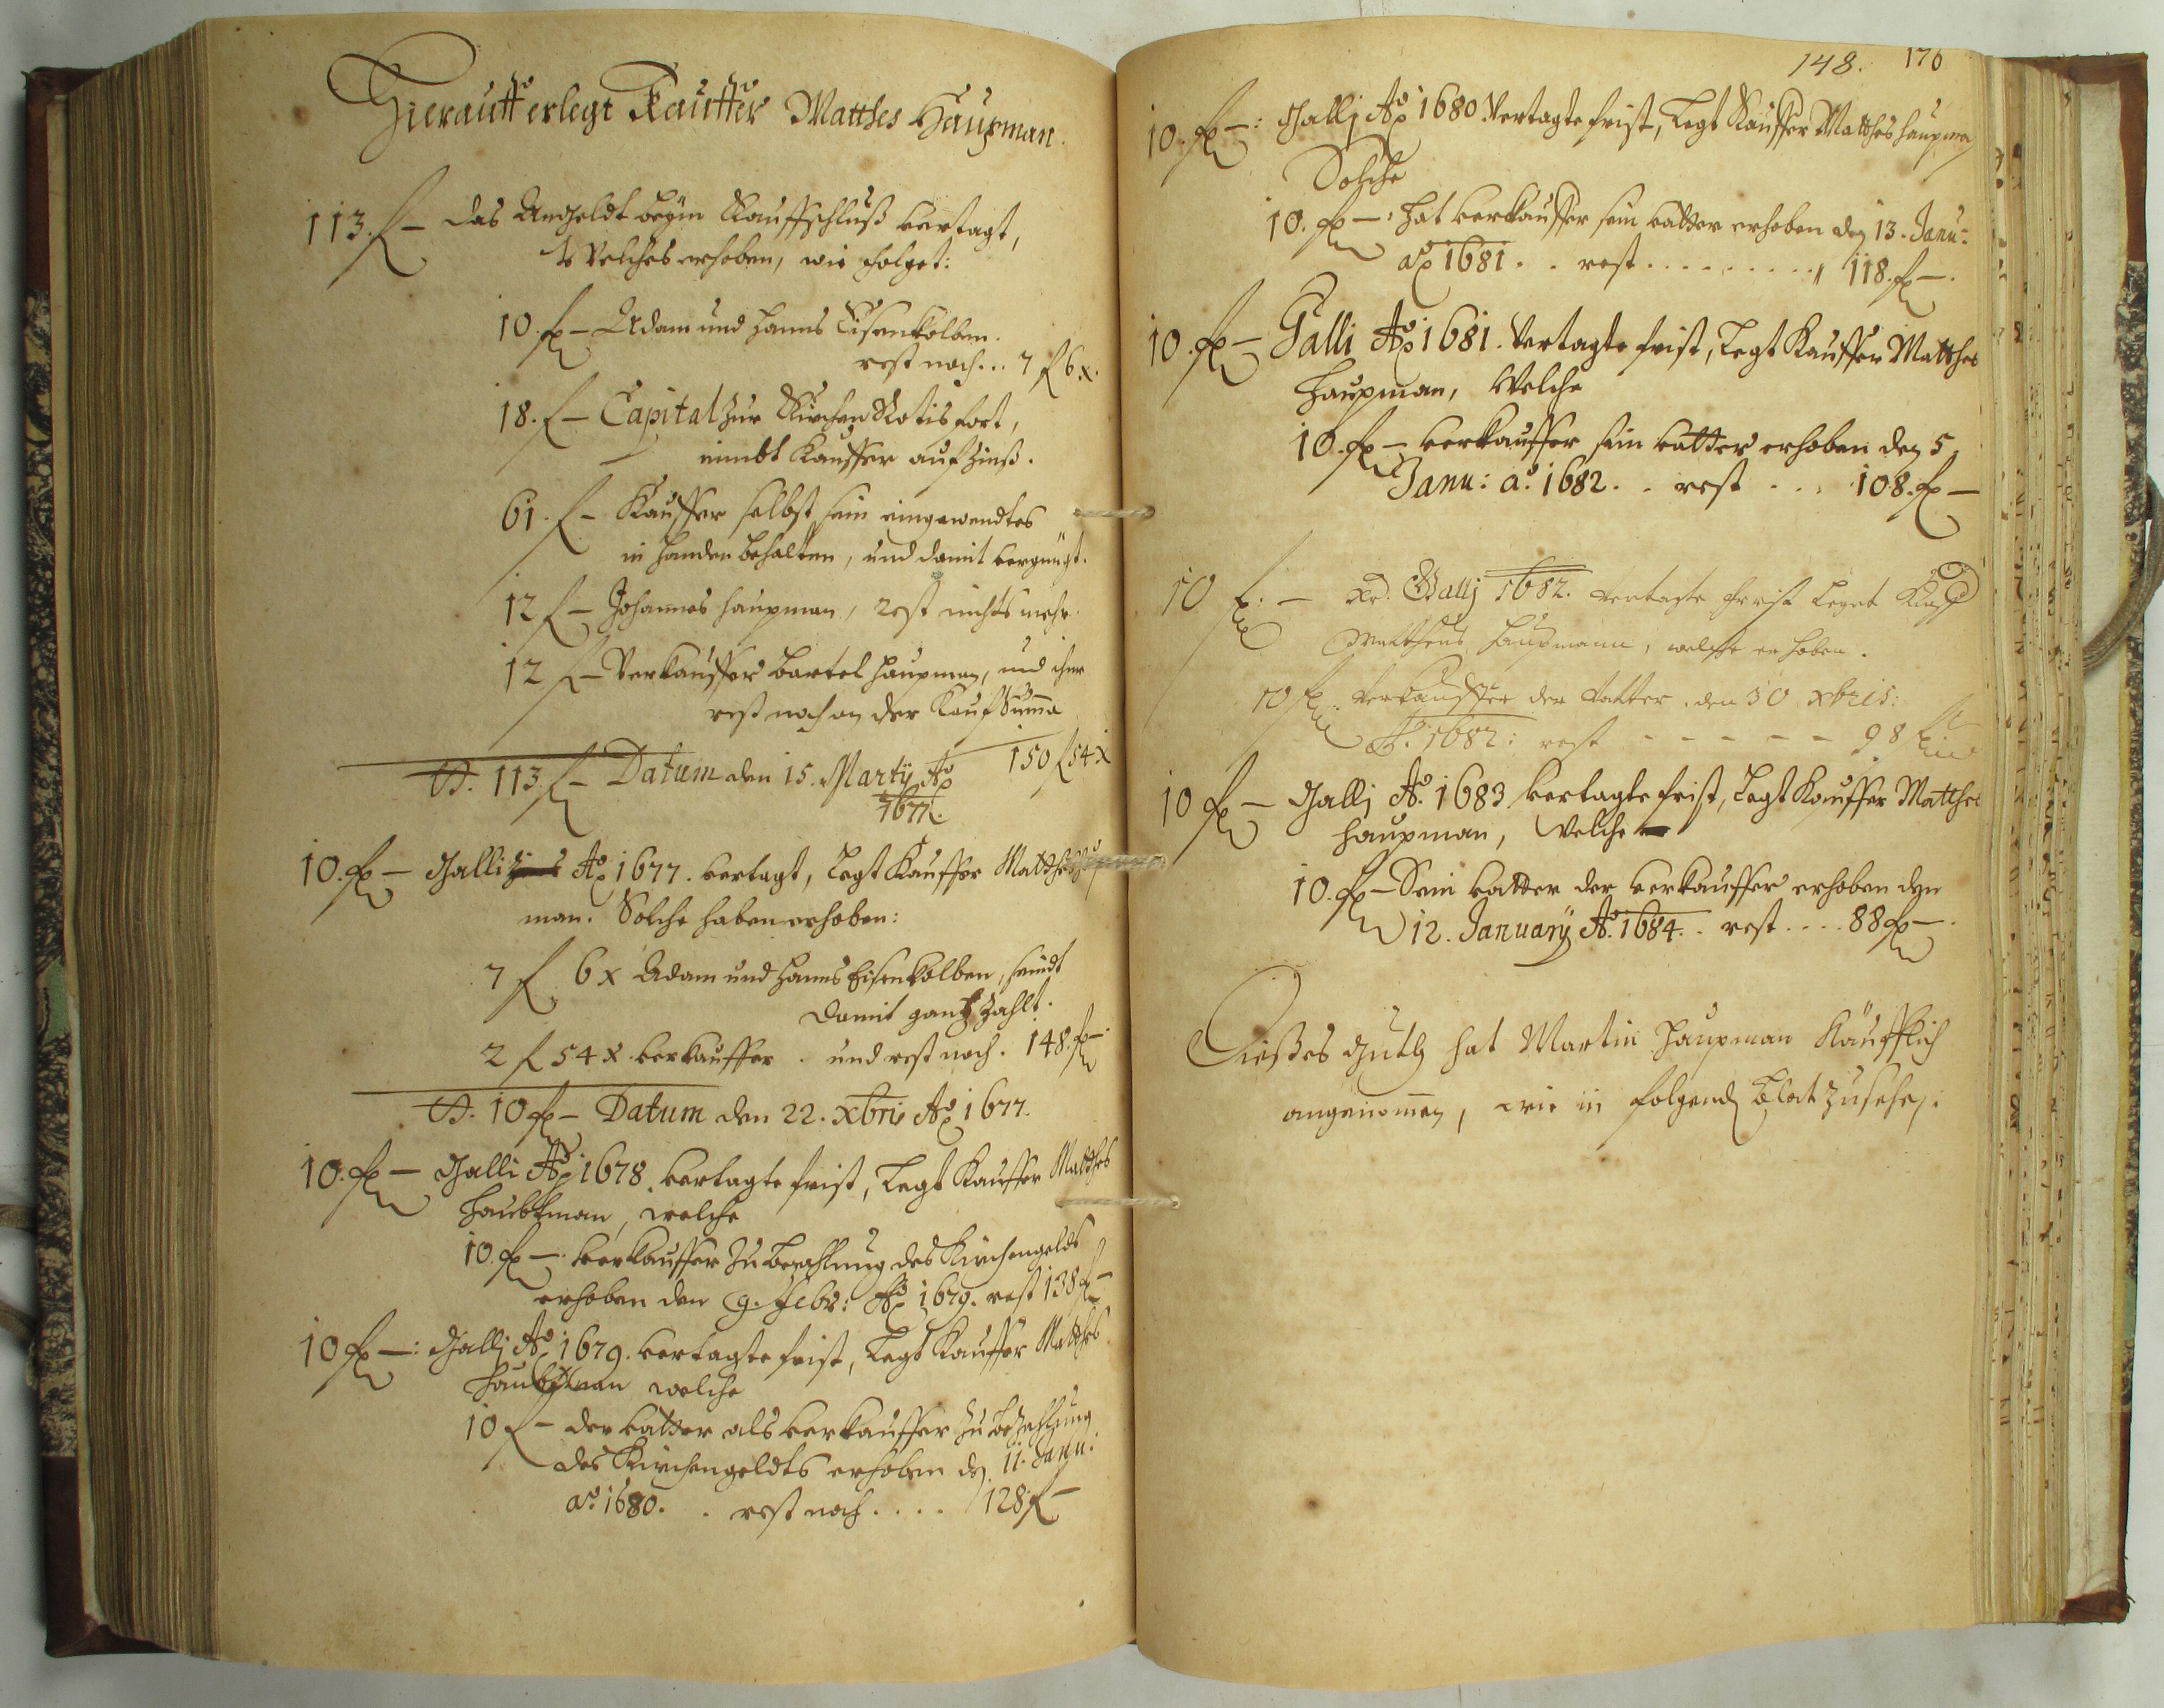 Hierauff erlegt Kauffer Matthes Haupman.
113. f – das Angeldt beӱm Kauffschluß vertagt,
Welches erhoben, wie folget:
10. f – Adam und Hanns Eisenkolben.
rest noch... 7 f 6 x.
18. f – Capital zur Kirchen Rotisfort,
nimbt Kauffer auf Zinß.
61. f – Kauffer selbst sein eingewendtes
in handen behalten, und damit vergnügt.
12 f – Johannes Haupman, rest nichts mehr.
12 f – Verkauffer Bartel Haupman, und ihme
rest noch an der Kauf Suma
150 f 54 x
S. 113. f – Datum den 15. Martÿ Ao
1677.
10. f – Galli Ao 1677. vertagt, Legt Kauffer Matthes Haup
man. Solche haben erhoben:
7 f 6 x Adam und Hanns Eisenkolben, seindt
damit gantz Zahlt.
2 f 54 x. verkauffer. und rest noch. 148. f –.
S. 10 f – Datum den 22. Xbris Ao 1677.
10. f – Galli Ao 1678. vertagte frist, Legt Kauffer Matthes
Haubtman, welche
10. f –. verkauffer zu bezahlung des Kirchengelds
erhoben den 9. Febr: Ao 1679. rest 138 f –
10 f –: Galli Ao 1679. vertagte frist, Legt Kauffer Matthes
Haubtman welche
10 f – der vatter als verkauffer zu bezahlung
des Kirchengeldts erhoben den 11. Janu:
ao. 1680. . rest noch.... 128 f –
148. 176
10. f –: Gallj Ao 1680 Vertagte frist, Legt Kauffer Matthes Haupman
Solche
10. f –: hat verkauffer sein vatter erhoben den 13. Janu:
ao 1681. . rest......... 118. f –.
10. f – Galli Ao 1681. Vertagte frist, Legt Kauffer Matthes
Haupman, Welche
10. f – verkauffer sein vatter erhoben den 5.
Janu: ao. 1682. . rest... 108. f –
10 f: – Gallj 1682. vertagte frist leget Kauf
Mattheus Haupmann, welche erhoben.
10 f. Verkauffer der Vatter. den 30 xbris:
Ao. 1682: rest – – – – – 98 f
10 f – Gallj Ao. 1683 vertagte frist, Legt Kauffer Matthes
Haupman, Welche
10. f – Sein vatter der verkauffer erhoben den
12. Januarÿ Ao. 1684. . rest.... 88 f –.
Dießes Guth hat Martin Haupman Käufflich
angenomen, wie in folgend Blat zusehen: